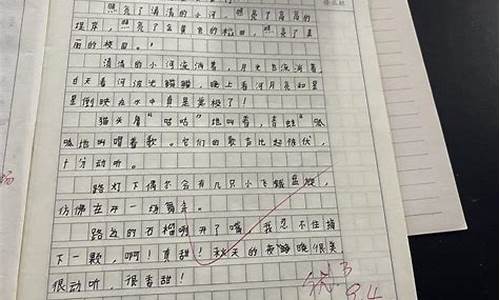 照亮了清清的小河,照亮了高高的
堤岸,照亮了金黄色的稻田,照亮了美
丽的校园。
清清的小河流淌着,月光也流淌着,
白天看河波光鳞鳞,晚上看河月亮和星
星倒映在水中真是美极了!
猫头鹰“咕咕”地叫着,青蛙“呱
呱地叫唱着歌。它们的歌声此起彼伏,
十分动听。
路灯下偶尔会有几只小飞蛾盘旋,
仿佛在开一场舞会。
路边的石榴咧开了嘴,我忍不住摘
下一颗,啊!真甜!秋天的夜晚很美
很动听,很香甜!
优